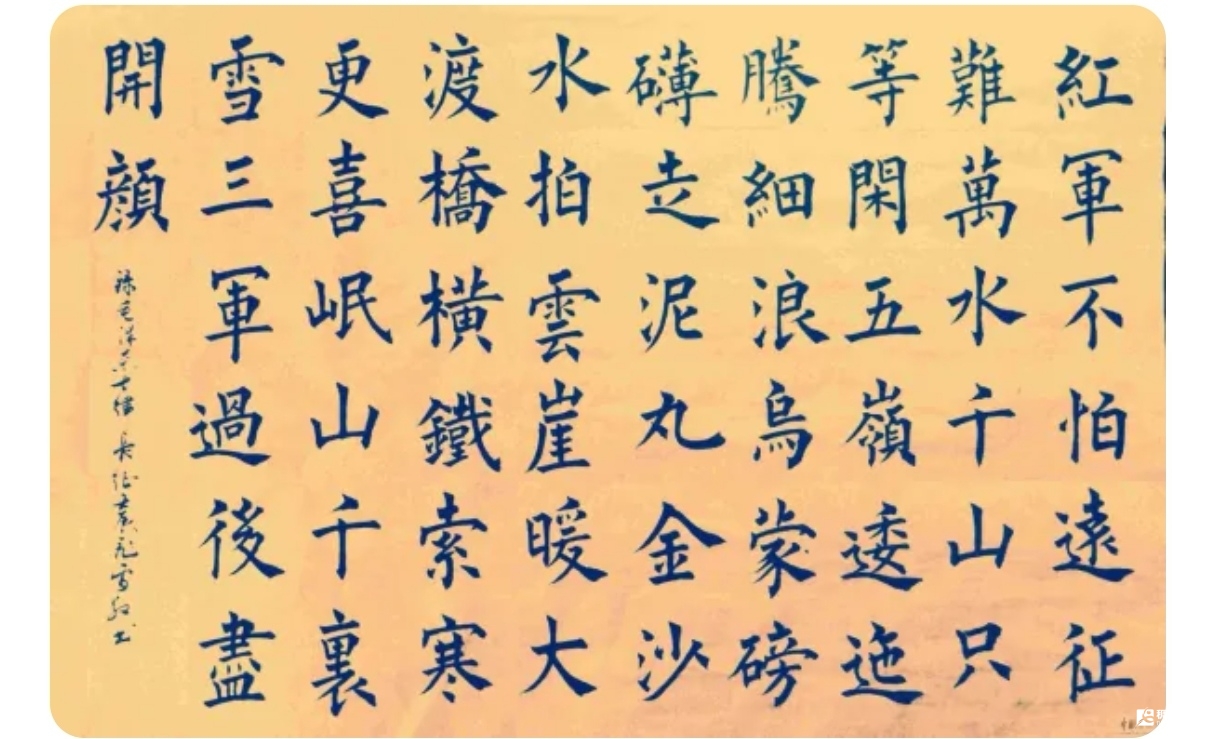 紅軍不怕遠征
難萬水千山只
等閑五嶺逶迤
騰細浪烏蒙磅
礴走泥丸金沙
水拍雲崖暖大
渡橋橫鐵索寒
更喜岷山千裏
雪三軍過後盡
開顔
毛泽东七律 長征